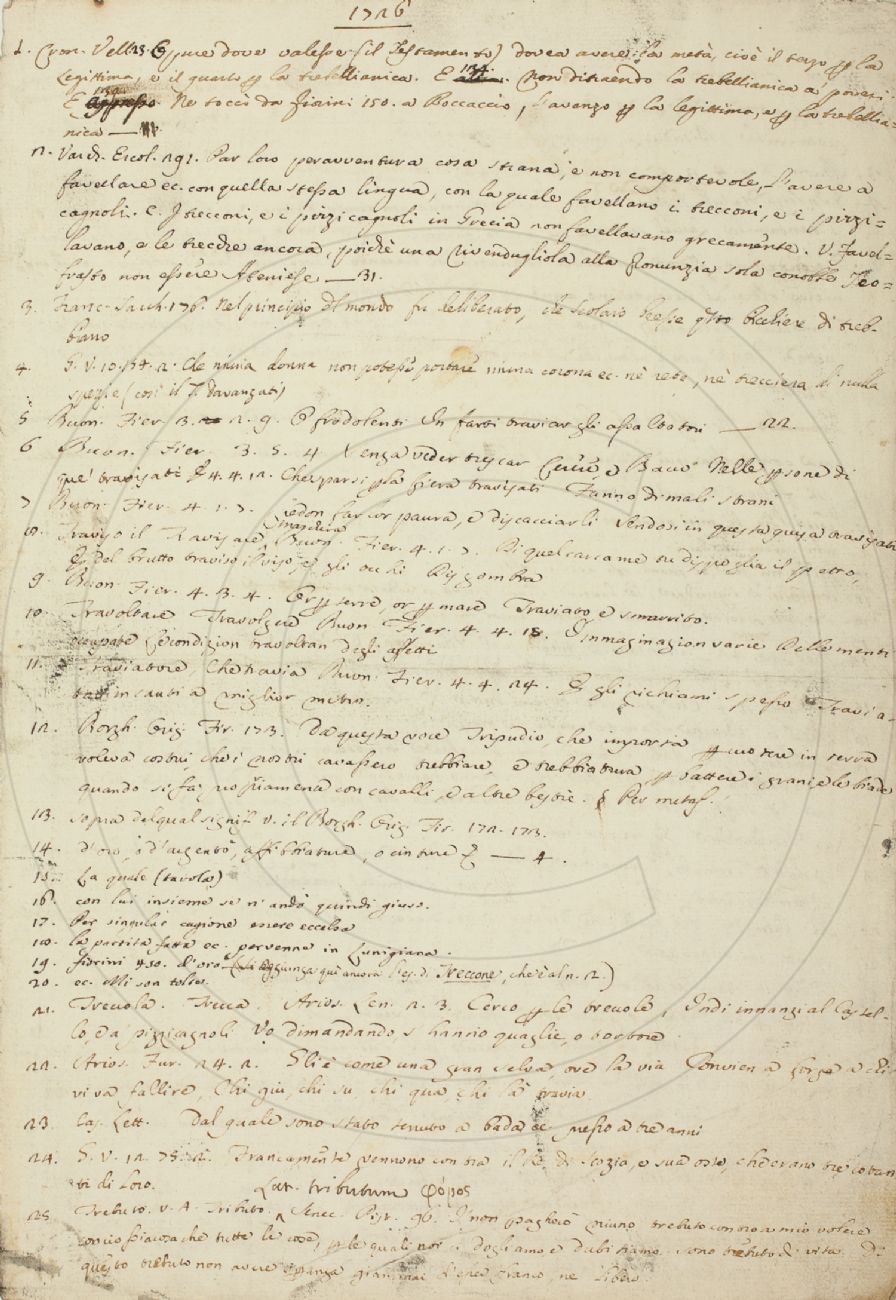 1726
1. Cron. Vell. 23. Eppure dove valesse (il Testamento) dovea avere la metà, cioè il terzo p la
legittima, e il quarto p la trebellianica. E 134. Non ditraendo la trebellianica a' poveri.
E appresso Ne toccò da fiorini 150. a Boccaccio, l'avanzo p la legittima, e p la trebellia-
nica —
2. Varch. Ercol. 291. Par loro peravventura cosa strana, e non comportevole, l'avere a
favellare ec. con quella stessa lingua, con la quale favellano i trecconi, e i pizzi-
cagnoli. C. I trecconi, e i pizzicagnoli in Grecia non favellavano grecamente. V. favel-
lavano, e le trecche ancora, poichè una rivendugliola alla pronunzia sola conobbe Teo-
frasto non essere Ateniese — 31.
3. Franc. Sacch. 176. Nel principio del mondo fu deliberato, che Scolaio beesse questo bicchiere di treb-
biano
4. G. V. 10. 154. 2. Che niuna donna non potesse portare niuna corona ec. nè rete, nè trecciera di nulla
spezie (così il T. Davanzati)
5 Buon. Fier. 3. 2. 9. E frodolenti In farti traviar gli assaltatori — 22.
6 Buon. Fier. 3. 5. 4 Senza veder trescar e Bacco Nelle psone di
que' travisati E 4. 4. 12. Che sparsi p la fiera travisati Fanno di mali strani
7 Buon. Fier. 4. 1. 7. Vedon far lor paura, e discacciarli Vendosi in questa guisa travisati
8. Traviso il Travisare, maschera Buon. Fier. 4. 1. 7. Di quel carcame tu dispoglia il petro,
E del brutto traviso il viso, e gli occhi Disgombra
9. Buon. Fier. 4. 3. 4. Or p terre, or p mare Traviato e smarrito.
10. Travoltare Travolgere Buon Fier. 4. 4. 18. Immaginazion varie Delle menti
occupate Le condizion travoltan degli affetti
11. Traviatore, Che travia Buon. Fier. 4. 4. 24. E gli richiami spesso Travia-
tor incauti a miglior metro.
12. Borgh. Orig. Fir. 173. Da questa voce Tripudio, che importa pcuotere in terra
voleva costui che i nostri cavassero trebbiare, e trebbiatura p battere i grani, e le biade
quando si fa propriamente con cavalli, e altre bestie. § Per metaf.
13. sopra del qual signif. v. il Borgh. Orig. Fir. 172. 173.
14. d'oro, o d'argento, affibbiature, o cinture E — 4.
15. La quale (tavola)
16. con lui insieme se n'andò quindi giuso.
17. Per singular cagione essere eccelsa
18. la partita fatta ec. pervenne in Lunigiana.
19. fiorini 450. d'oro (Si aggiunga qui ancora l'es. di Treccone, che è al n. 2)
20. ec. Mi son tolto.
21. Trecola. Trecca. Arios. Len. 2. 3. Cerco p le trecole, Indi innanzi al Castel-
lo, da' pizzicagnoli Vo dimandando, s'hanno quaglie, o tortore.
22. Arios. Fur. 24. 2. Gli è come una gran selva, ove la via Convien a forza a chi
vi va fallire, Chi giù, chi su, chi qua, chi là travia.
23. Cas. Lett. Dal quale sono stato tenuto a bada ec. presso a tre anni
24. G. V. 12. 75. 2. Francamente vennono contra il Re di Scozia, e sua oste, ch'erano tre cotan-
ti di loro. Lat. tributum φόρος
25. Trebuto. V. A. Tributo. Senec. Pist. 96. I' non pagherò niuno trebuto contro a mio volere
conciossiacosachè tutte le cose, p le quali noi ci dogliamo e dubitiamo sono trebuto di vita. Di
questo trebuto non avere speranza giammai d'esser franco, nè libero.